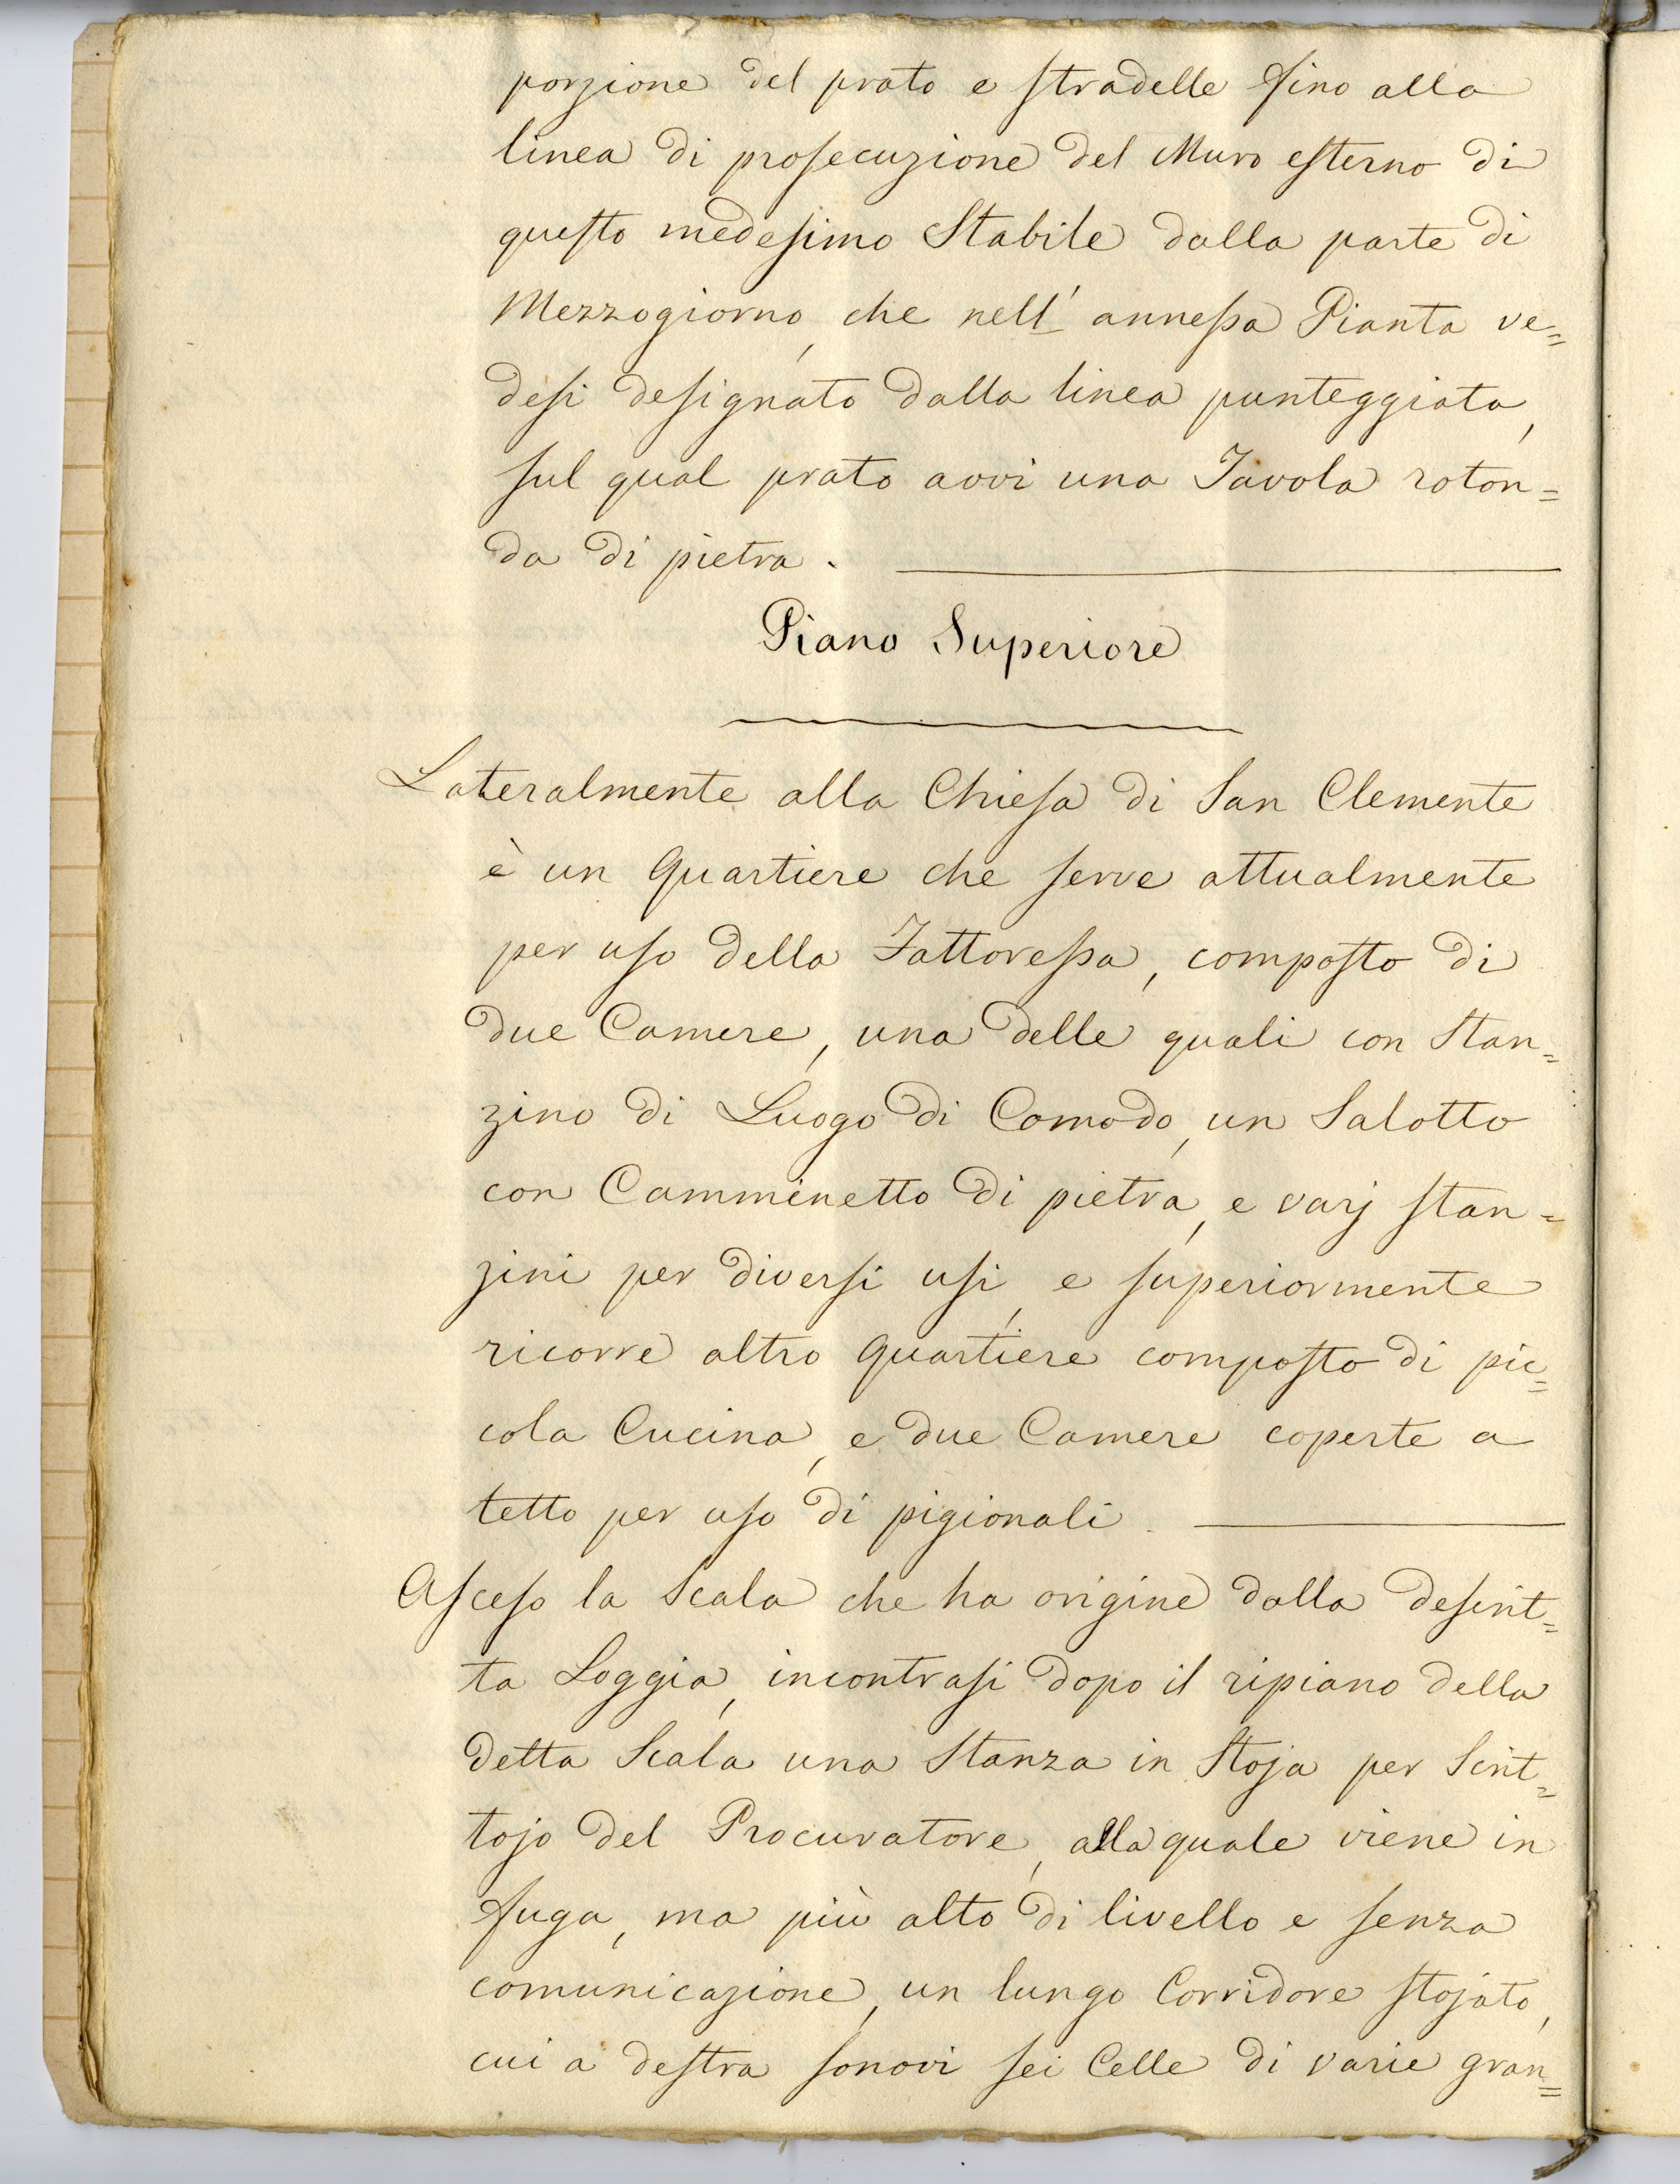 porzione del prato e stradelle fino alla
linea di prosecuzione del Muro esterno di
questo medesimo Stabile dalla parte di
Mezzogiorno, che nell' annessa Pianta ve=
desi designato dalla linea punteggiata,
sul qual prato avvi una Tavola roton=
da di pietra.
Piano Superiore
Lateralmente alla Chiesa di San Clemente
è un Quartiere che serve attualmente
per uso della Fattoressa, composto di
due Camere, una delle quali con Stan=
zino di Luogo di Comodo, un Salotto
con Camminetto di pietra, e varj stan=
zini per diversi usi, e superiormente
ricorre altro Quartiere composto di pic=
cola Cucina, e due Camere coperte a
tetto per uso di pigionali.
Asceso la Scala che ha origine dalla descrit=
ta Loggia, incontrasi dopo il ripiano della
detta Scala una Stanza in Stoja per Scrit=
tojo del Procuratore, alla quale viene in
fuga, ma più alto di livello e senza
comunicazione, un lungo Corridore stojato,
cui a destra sonovi sei Celle di varie gran=